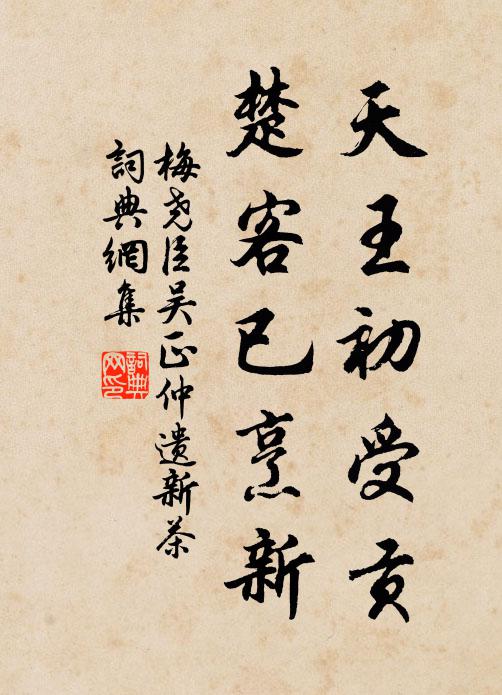 天王初受贡
楚客已烹新
梅尧臣吴正仲遗新茶
詞典網集
詞典网印